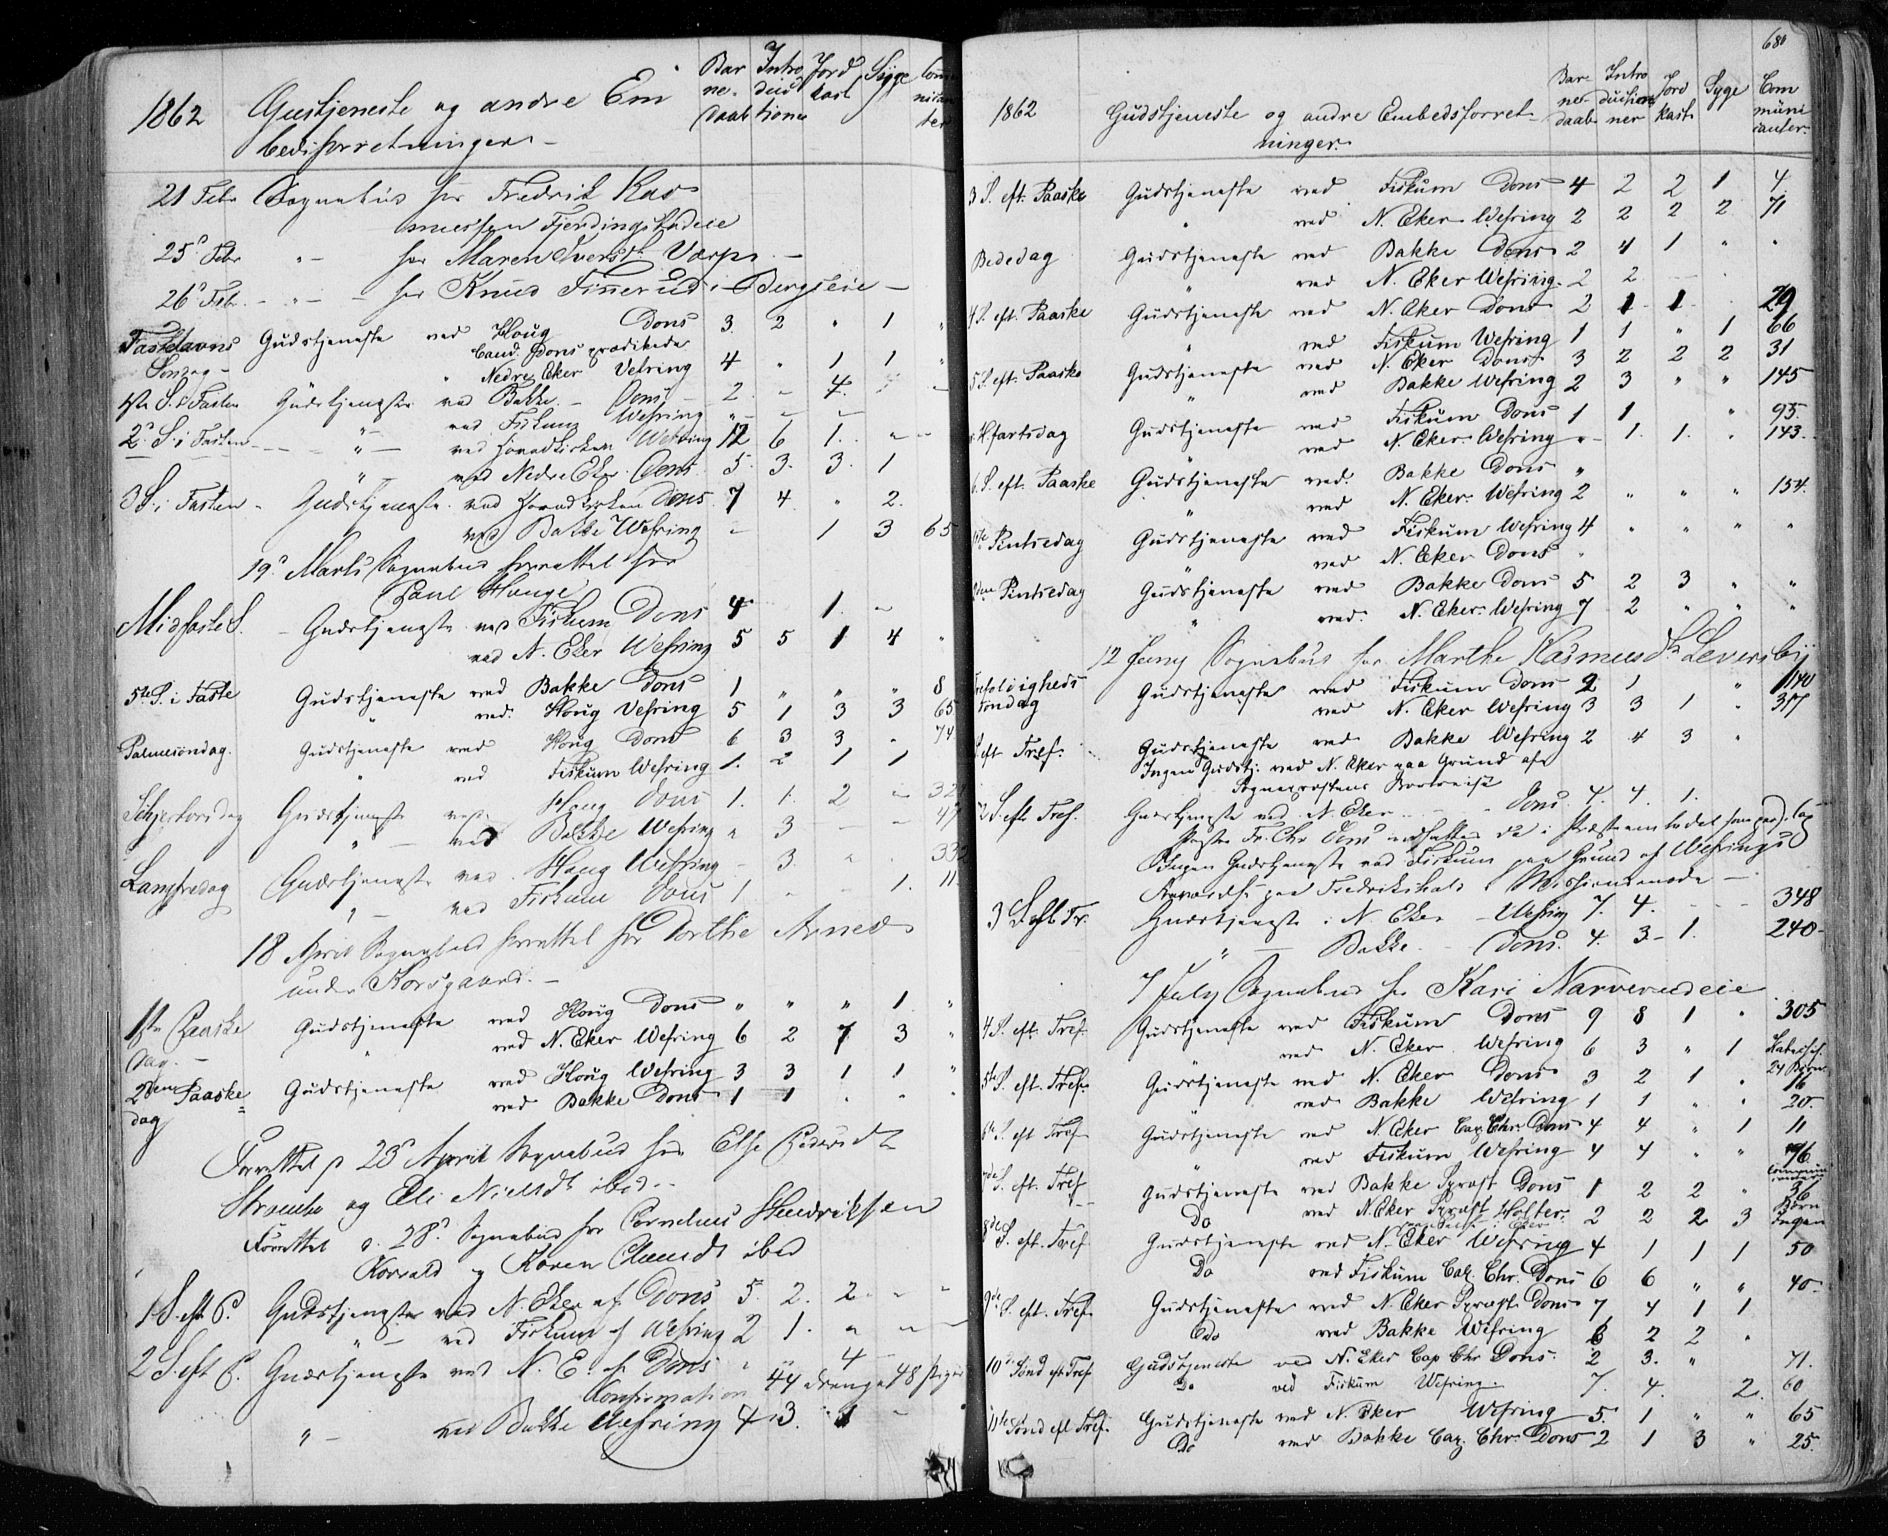 1862 Gustjeneste og andre Em
bedsforretninger
Bar
ne-
daab
Intro
duc
tioner
Jord
kast
Syge
Comu
nican
ter
21 Febr Sognebud hos Fredrik Ras
mussen Fjerdingstadeie
25 Febr " - hos Maren Iversdt Varps -
26 Feb - " - - hos Knud Finnerud i Bergseie -
Fastelavns Gudstjeneste ved Houg Dons 3. 2 " 1 "
Søndag - Cand. Dons prædikede
" Nedre Eker Vefring 4 " 1 1 "
1ste S. i Fasten Gudstjeneste ved Bakke - Dons 2 - 4.
" - ved Fiskum Wefring " - -
2. S. i Fasten " - ved Hovedkirken Wefring 12 6 1. " -
" ved Nedre Eker Dons 5. 3. 3. 1
3 S. i Fasten - Gudstjeneste ved Hovedkirken Dons 7 4. " 2.
ved Bakke Wefring - 1 3 65
19 Marts Sognebud forrettet hos
Poul Houge
Midfaste S. - Gudstjeneste ved Fiskum Dons 4 1. -
ved N. Eker Wefring 5 5 1 4 "
5te S. i Faste Gudstjeneste ved Bakke Dons 1 " " " 8
" ved Houg Vefring 5 1 3 3 65
Palmesøndag. Gudstjeneste ved Houg Dons 6 3 3 " 74
" ved Fiskum Wefring 1. 2 1 1
Skjertorsdag Gudstjeneste ved Houg Dons 1. 1. 2 - 32
" - ved Bakke Wefring " 3 - - 47
Langfredag Gudstjeneste ved Houg Wefring - 3. " 33
" - ved Fiskum Dons 1 - - 1. 11
18 April Sognebud forrettet hos Dorthe Arnesd
under Korsgaard. -
1ste Paaske Gudstjeneste ved Houg Dons " " " 1 "
dag. - " ved N. Eker Wefring 6 2 7 3 "
2den Paaske Gudstjeneste ved Houg Wefring 3 3 1 1 "
dag ved Bakke Dons 1 1 " " "
Forrettet d 23 April Sognebud hos Else Pedersdt
og Eli Nielsdt ibid -
Forrettet d. 28. Sognebud hos Cornelius Hendriksen
Korvald og Karen ibid
1 S. eft P. Gudstjeneste ved N. Eker af Dons 5. 2. 2 " "
" - ved Fiskum af Wefring 2 1. " " -
2 S. eft P. Gudstjeneste ved N. E. af Dons " " 4
Confirmation 44 drenge 48 piger
" - ved Bakke Wefring 4 3. " 1 -
680
1862 Gudstjeneste og andre Embedsforret-
ninger.
Bar
ne-
daab
Intro
ductio
ner
Jord
kast
Syge
Com
muni
canter.
3 S. eft. Paaske Gudstjeneste ved Fiskum Dons 4 2 2 1 4.
" ved N. Eker Wefring 2 2 2 2 71
Bededag Gudstjeneste ved Bakke Dons 2 4 1 " "
" ved N. Eker Wefring. 2 2
4 S. eft. Paaske Gudstjeneste ved N. Eker Dons 2. 1 1 29
" ved Fiskum Wefring 1 1 " 1 66
5 S. eft. Paaske Gudstjeneste ved N. Eker Dons 3 2 2 2 31
" ved Bakke Wefring 2 3 " " 145
Hfartsdag Gudstjeneste ved Fiskum Dons 1 1 " 95.
ved N. Eker Wefring " 1. 1. " 143.
6. S. eft. Paaske Gudstjeneste ved Bakke Dons "
" ved N. Eker Wefring 2 " " " 154.
1ste Pintsedag Gudstjeneste ved Fiskum Wefring 4 " " " "
" ved N. Eker Dons "
2den Pintsedag Gudstjeneste ved Bakke Dons 5 2 3 " "
" ved. N. Eker Wefring 7 2 " " "
12 Juny Sognebud hos Marthe Rasmusdt Leversby
Trefoligheds Gudstjeneste ved Fiskum Dons 2 1 " 140
søndag ved N. Eker Wefring 3 3 1 " 317
S. eft Tref. Gudstjeneste ved Bakke Wefring 2 4 3 "
Ingen Gudstj. ved N. Eker paa Grund af
Sognepræstens Bortreise
2 S. eft Tref. Gudstjeneste ved N. Eker - Dons. 4. 4. 1.
Præsten Fr. Chr Dons indsattes da i Præsteembedet
Ingen Gudstjeneste ved Fiskum paa Grund af Wefrings
paa Fredrikshald Missionsmøde -
3 S. eft Tr. Gudstjeneste i N Eker - Wefring 7. 4. - - 348
" - Bakke - Dons. 4. 3 - 1. 240 -
7 July Sognebud hos Kari Narverudeie
4 S. eft. Tref. Gudstjeneste ved Fiskum Dons 9 8 1 " 305
ved N. Eker Wefring 6 3 " 1
24 Børn
5te S. eft. Tref. Gudstjeneste ved N. Eker Dons 3 2 1 " 16
ved Bakke Wefring 1 1 " " 20.
6te S. eft Tref Gudstjeneste ved N. Eker Cap. Chr. Dons 4 4 " 1 11
ved Fiskum Wefring 4 4 " " 76
7de S. eft. Tref Gudstjeneste ved Bakke Sprøst Dons 1 2 2 " 36
Do ved N. Eker Sprøst Holter. 2 2 2 3 Ingen
8de S. eft. Tref Gudstjeneste ved N. Eker Wefring 4 1 1 1 50
Do ved Fiskum Cap. Chr. Dons 6 6 " " 40
9de S. eft. Tref Gudstjeneste ved N. Eker Sprøst Dons 7 4 1 1
Do ved Bakke Wefring 6 2 2 "
10de Sønd eft Tref Gudstjeneste ved N. Eker Cap Chr Dons. 2 3. " 71.
Do ved Fiskum Wefring. 7. 4. 2. 60
11te Sønd eft Tref. Gudstjeneste ved N. Eker Wefring 5. 1 " " 65
Do ved Bakke Cap. Chr. Dons 2 1 3 " 25.